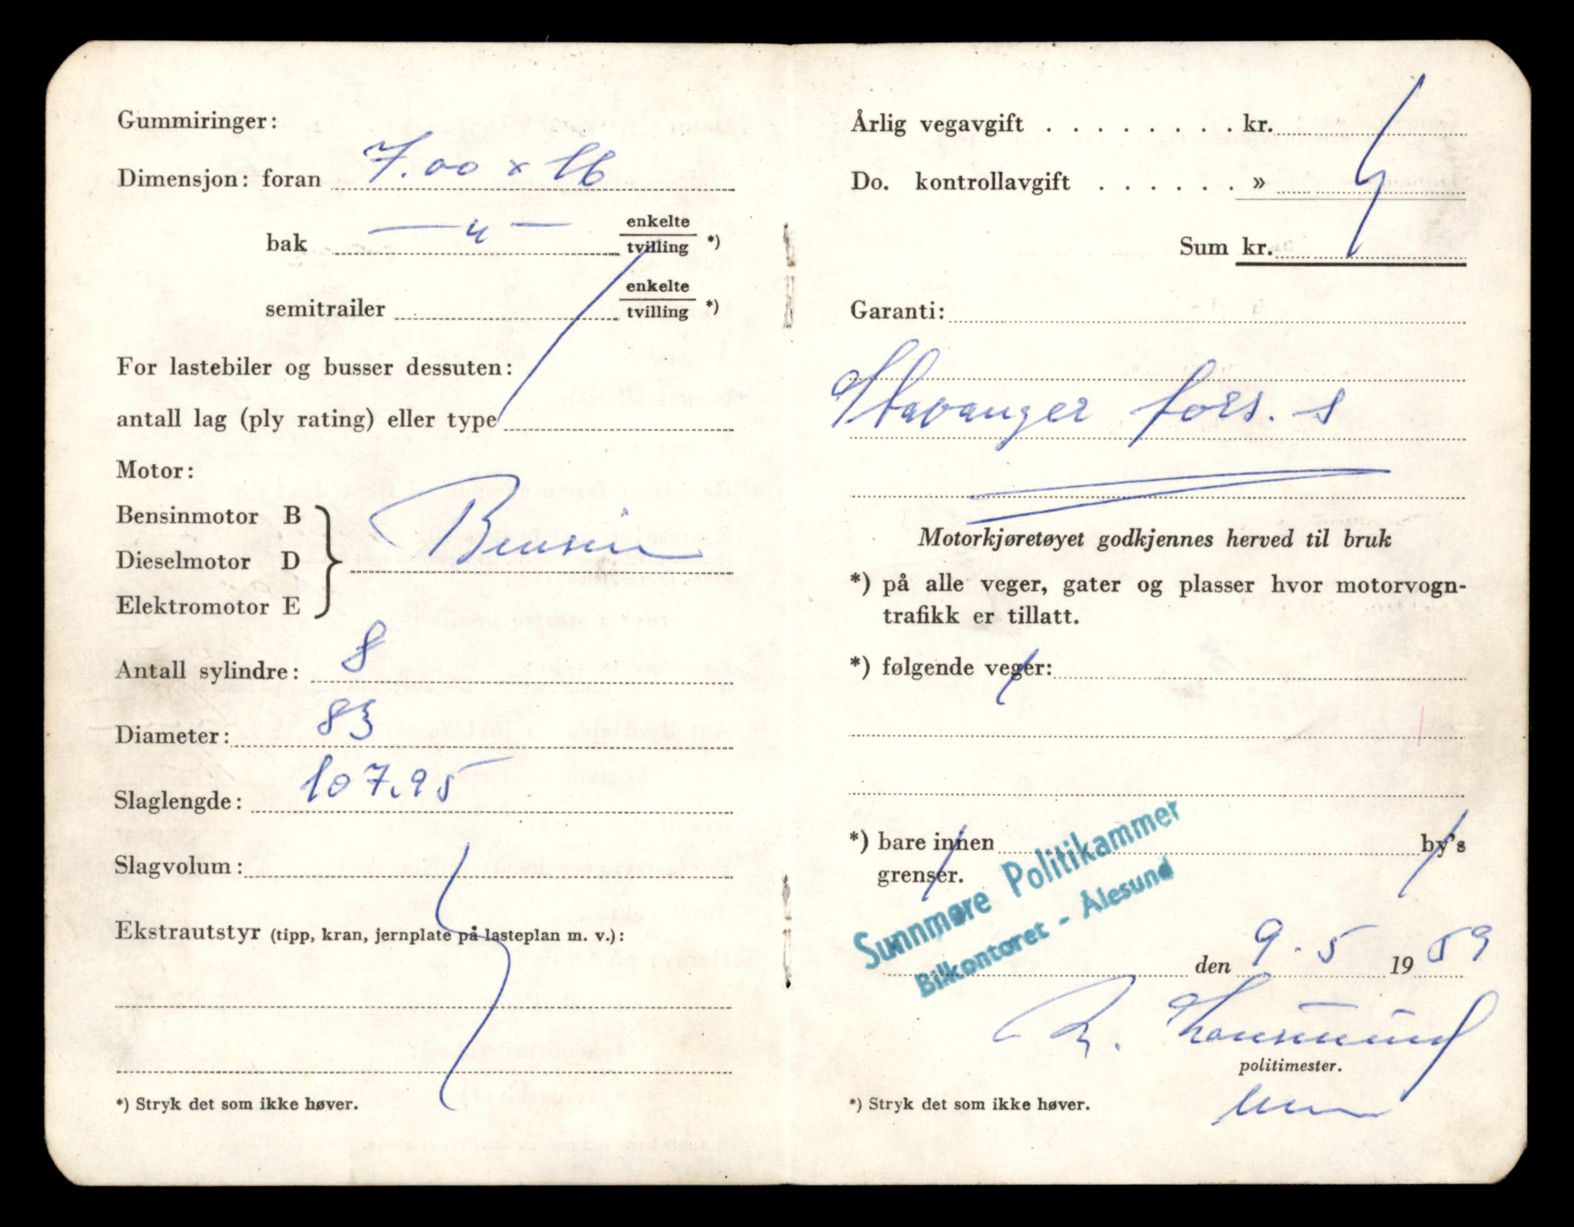 Gummiringer:
Dimensjon: foran 7.00 x 16
bak — " — enkelte tvilling *)
semitrailer enkelte tvilling *)
For lastebiler og busser dessuten:
antall lag (ply rating) eller type
Motor:
Bensinmotor B
Dieselmotor D
Elektromotor E
Bensin
Antall sylindre: 8
Diameter: 83
Slaglengde: 107.95
Slagvolum:
Ekstrautstyr (tipp, kran, jernplate på lasteplan m. v.):
*) Stryk det som ikke høver.
Årlig vegavgift . . . . . . . . kr.
Do. kontrollavgift . . . . . . »
Sum kr.
Garanti:
Stavanger fors. s
Motorkjøretøyet godkjennes herved til bruk
*) på alle veger, gater og plasser hvor motorvogn-
trafikk er tillatt.
*) følgende veger:
*) bare innen by's
grenser.
Sunnmøre Politikammer
Bilkontoret - Ålesund
den 9.5 1959
politimester.
*) Stryk det som ikke høver.